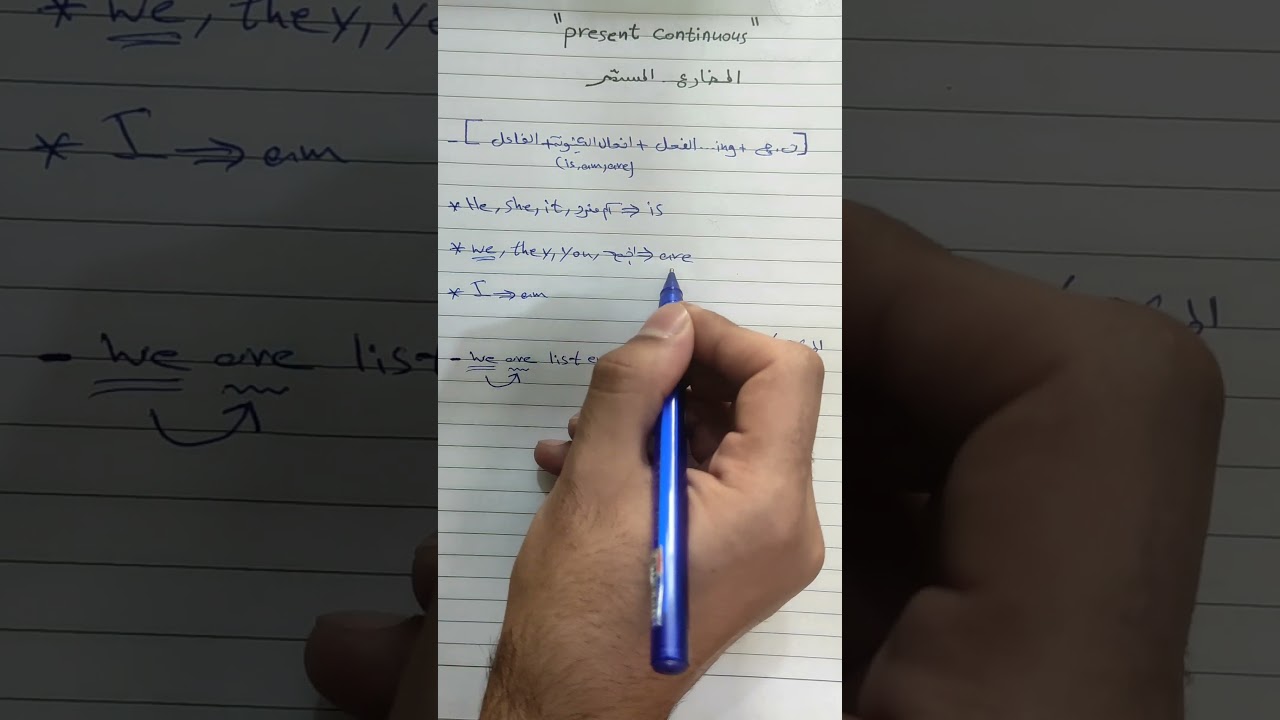 "present continuous"
المضارع المستمر
- [الفاعل + افعال الكينونة + الفعل...ing + ت.ع]
(is, am, are)
* He, she, it, اسم مفرد ⇒ is
* we, they, you, جمع ⇒ are
* I ⇒ am
- we are list